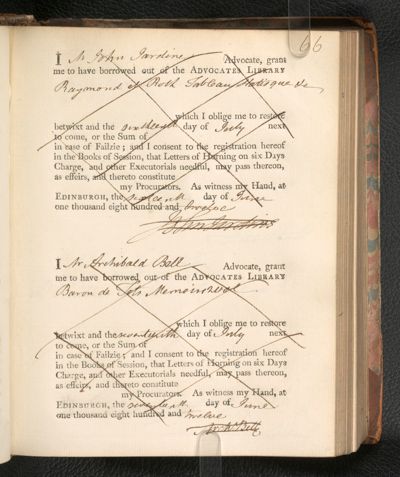 66
I Mr John Jardine Advocate, grant
me to have borrowed out of the ADVOCATES LIBRARY
Raymond et Roth Tableau
which I oblige me to restore
betwixt and the sixteenth day of July next
to come, or the Sum of
in case of Failzie; and I consent to the registration hereof
in the Books of Session, that Letters of Horning on six Days
Charge, and other Executorials needful, may pass thereon,
as effeirs, and thereto constitute
my Procurators. As witness my Hand, at
EDINBURGH, the sixteenth day of June
one thousand eight hundred and twelve
John Jardine
I Mr Archibald Bell Advocate, grant
me to have borrowed out of the ADVOCATES LIBRARY
Baron de Memoirs 2 vol
which I oblige me to restore
betwixt and the seventeenth day of July next
to come, or the Sum of
in case of Failzie; and I consent to the registration hereof
in the Books of Session, that Letters of Horning on six Days
Charge, and other Executorials needful, may pass thereon,
as effeirs, and thereto constitute
my Procurators. As witness my Hand, at
EDINBURGH, the day of June
one thousand eight hundred and twelve
Bell